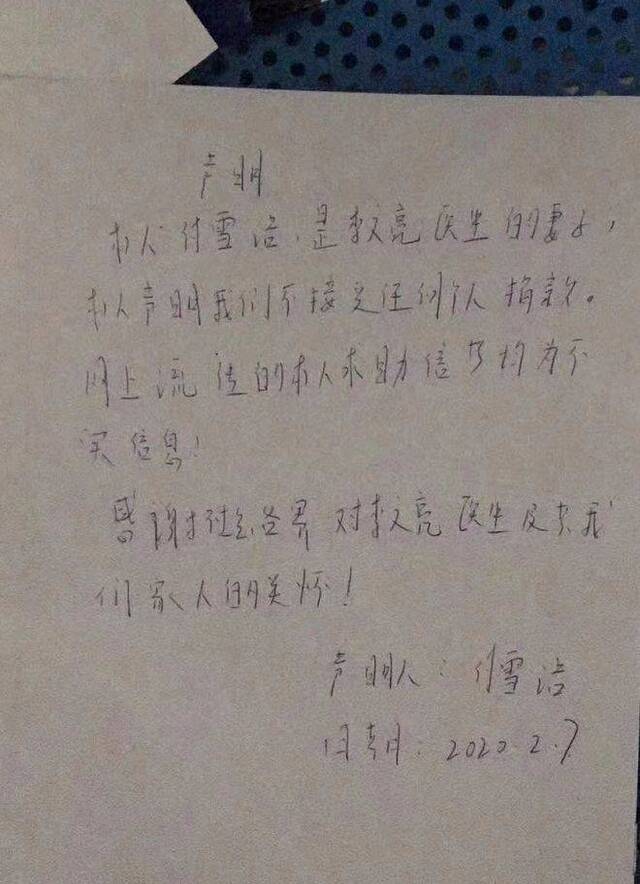 声明
本人付雪洁，是李文亮医生的妻子，
本人声明我们不接受任何个人捐款。
网上流传的本人求助信等均为不
实信息！
感谢社会各界对李文亮医生及其我
们家人的关怀！
声明人：付雪洁
日期：2020.2.7